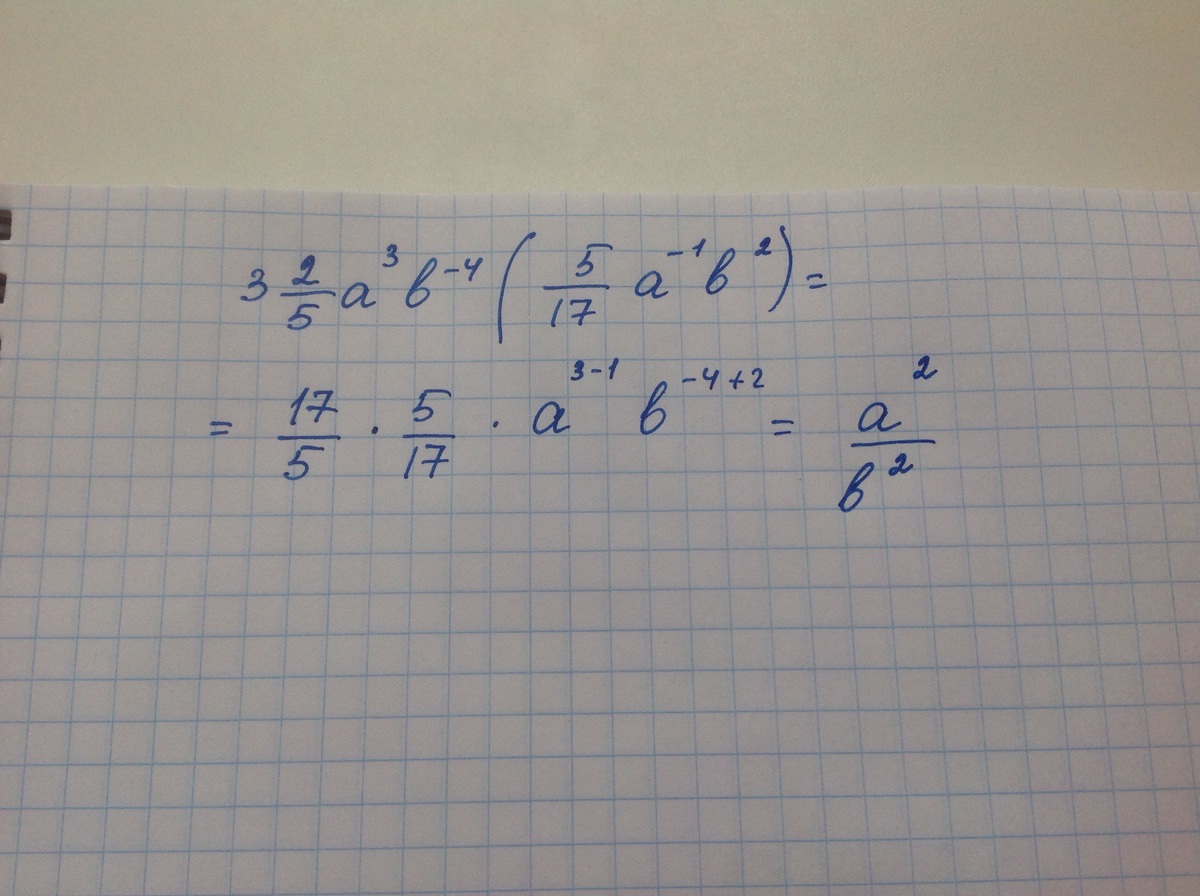 3 2/5 a^3 b^-4 (5/17 a^-1 b^2) =
= 17/5 · 5/17 · a^3-1 b^-4+2 = a^2/b^2